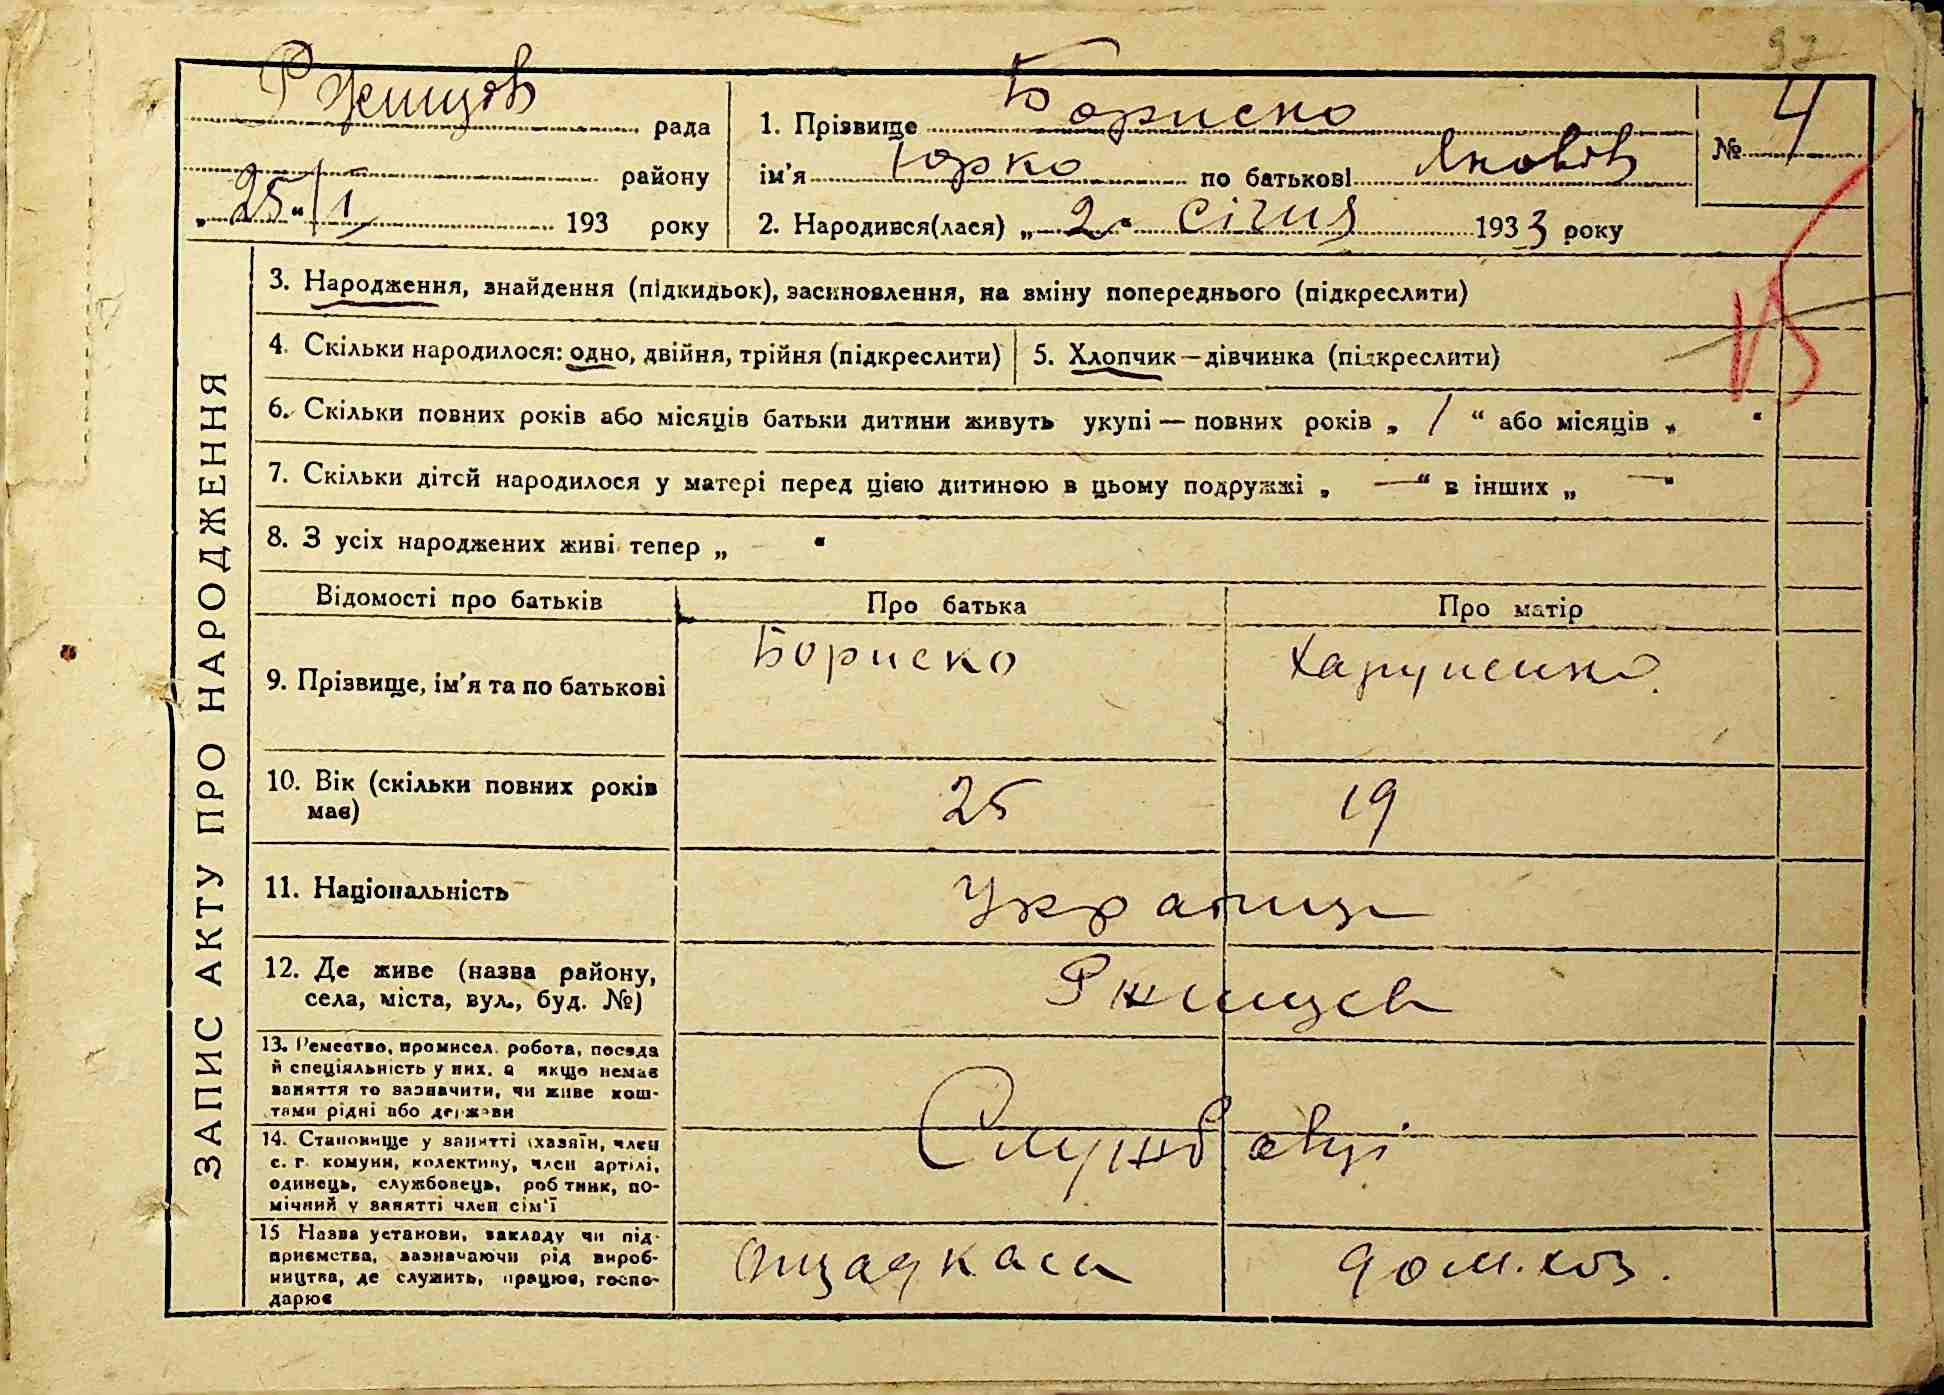 97
Ржищів рада
району
„25“/1 193 року
1. Прізвище Бориско
ім'я Юрко по батькові Яковів
2. Народився(лася) „2“ січня 1933 року
№ 4
ЗАПИС АКТУ ПРО НАРОДЖЕННЯ
3. Народження, знайдення (підкидьок), засиновлення, на зміну попереднього (підкреслити)
4. Скільки народилося: одно, двійня, трійня (підкреслити)
5. Хлопчик—дівчинка (підкреслити)
6. Скільки повних років або місяців батьки дитини живуть укупі — повних років „ 1 “ або місяців „ “
7. Скільки дітей народилося у матері перед цією дитиною в цьому подружжі „ — “ в інших „ — “
8. З усіх народжених живі тепер „ “
Відомості про батьків Про батька Про матір
9. Прізвище, ім'я та по батькові Бориско
10. Вік (скільки повних років 25 19
має)
11. Національність Українці
12. Де живе (назва району, Ржищев
села, міста, вул., буд. №)
13. Ремество, промисел. робота, посада
й спеціяльність у них, а якщо немає
заняття то зазначити, чи живе кош-
тами рідні або держави
Службовці
14. Становище у занятті (хазяїн, член
с. г. комуни, колективу, член артілі,
одинець, службовець, робітник, по-
мічний у занятті член сім'ї
15 Назва установи, закладу чи під-
приємства, зазначаючи рід вироб-
ництва, де служить, працює, госпо-
дарює
ощадкаса дом.хоз.